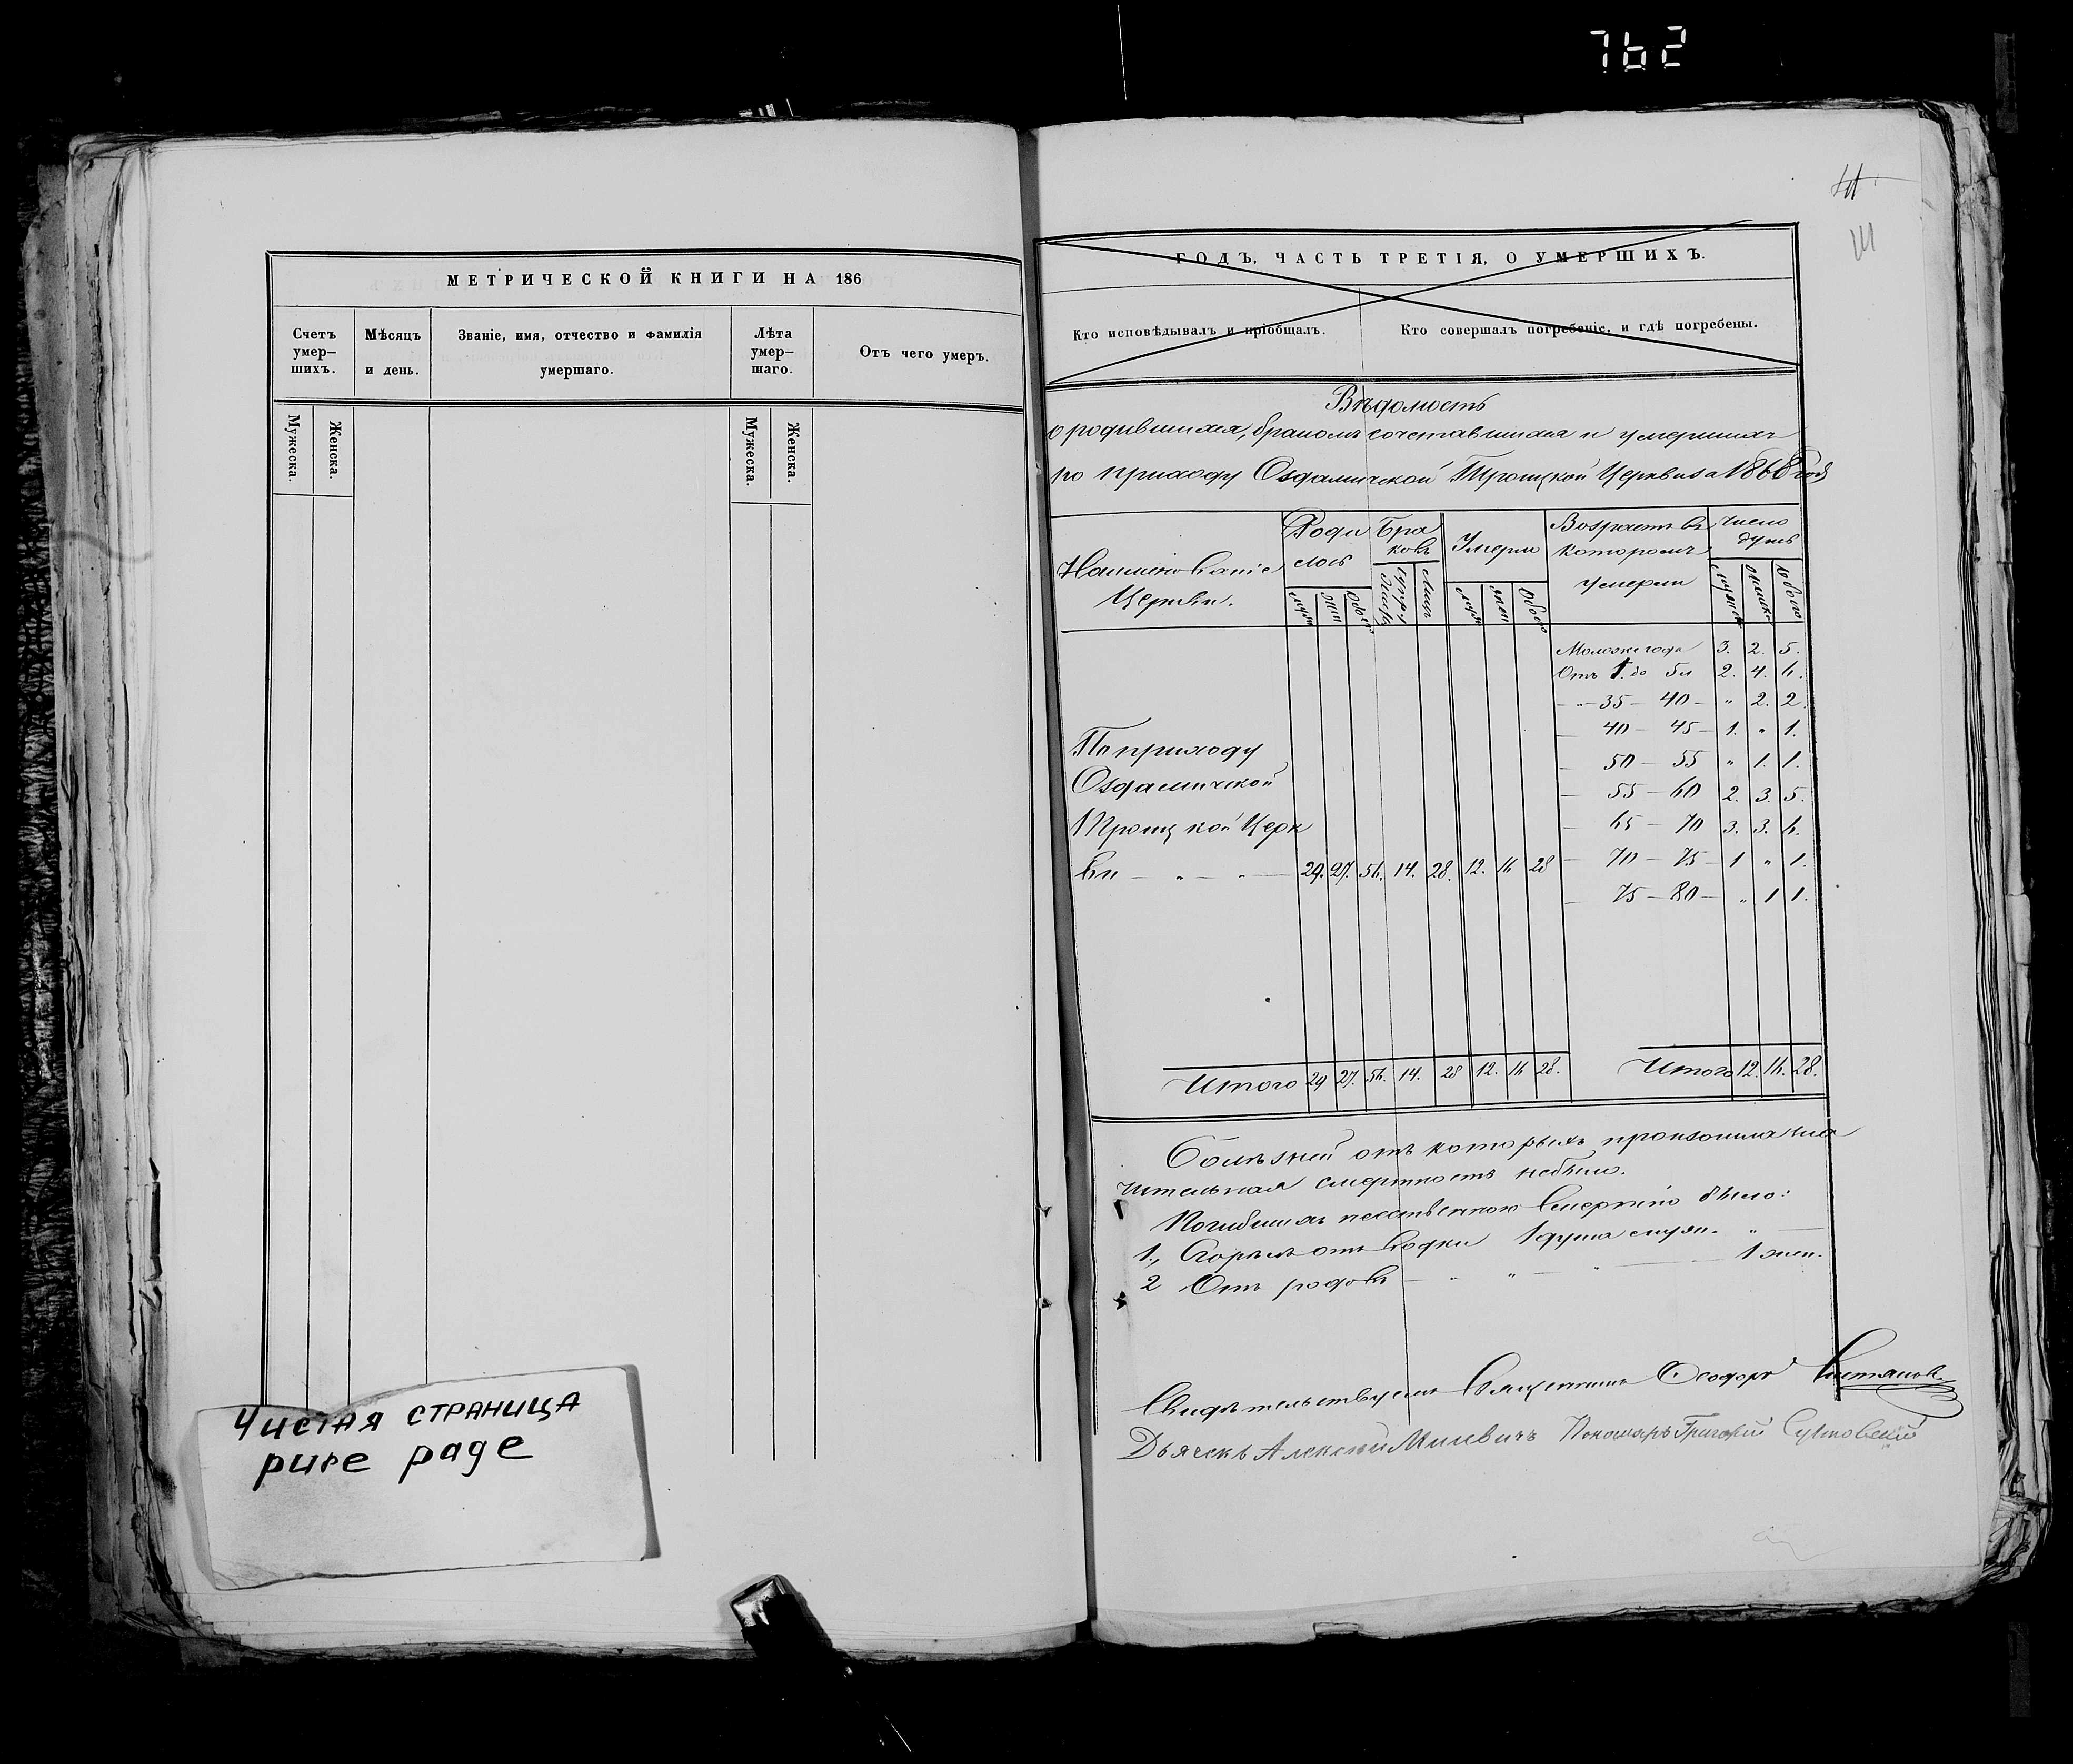 762
МЕТРИЧЕСКОЙ КНИГИ НА 186
Счетъ умер-шихъ.
Мѣсяцъ и день.
Званіе, имя, отчество и фамилія умершаго.
Лѣта умер-шаго.
Отъ чего умеръ.
Мужеска. Женска. Мужеска. Женска.
Чистая страница
pure page
ГОДЪ, ЧАСТЬ ТРЕТІЯ, О УМЕРШИХЪ.
Кто исповѣдывалъ и пріобщалъ.
Кто совершалъ погребеніе, и гдѣ погребены.
Вѣдомость
о родившихся, бракомъ сочетавшихся и умершихъ
по приходу Оздамичской Троицкой Церкви за 1868 годъ
Наименованіе Церкви.
Родилось
Браковъ
Умерло
Возрастъ въ которомъ умерли
Число душъ
муж. жен. обоего муж. жен. обоего
Моложе года 3. 2. 5.
Отъ 1. до 5 л 2. 4. 6.
— „ — 35 — 40 — „ 2. 2.
— 40 — 45 — 1. „ 1.
— 50 — 55 „ 1. 1.
— 55 — 60 2. 3. 5.
— 65 — 70 3. 3. 6.
— 70 — 75 — 1 „ 1.
— 75 — 80 — „ 1 1.
По приходу
Оздамичской
Троицкой Церк
ви — „ — „ — 29. 27. 56. 14. 28. 12. 16 28
Итого 29 27. 56. 14. 28 12. 16 28.
Итого 12. 16. 28.
Болѣзней отъ которыхъ произошла зна
чительная смертность небыло.
Погибшихъ неестѣственною смертію было:
1., Сгорѣлъ отъ водки 1 душа муж. „ —
2 Отъ родовъ — „ — „ — 1 жен.
Свидѣтельствуемъ Священникъ Ѳеодоръ
Дьячекъ Алексѣй Милевичъ Пономарь Григорій